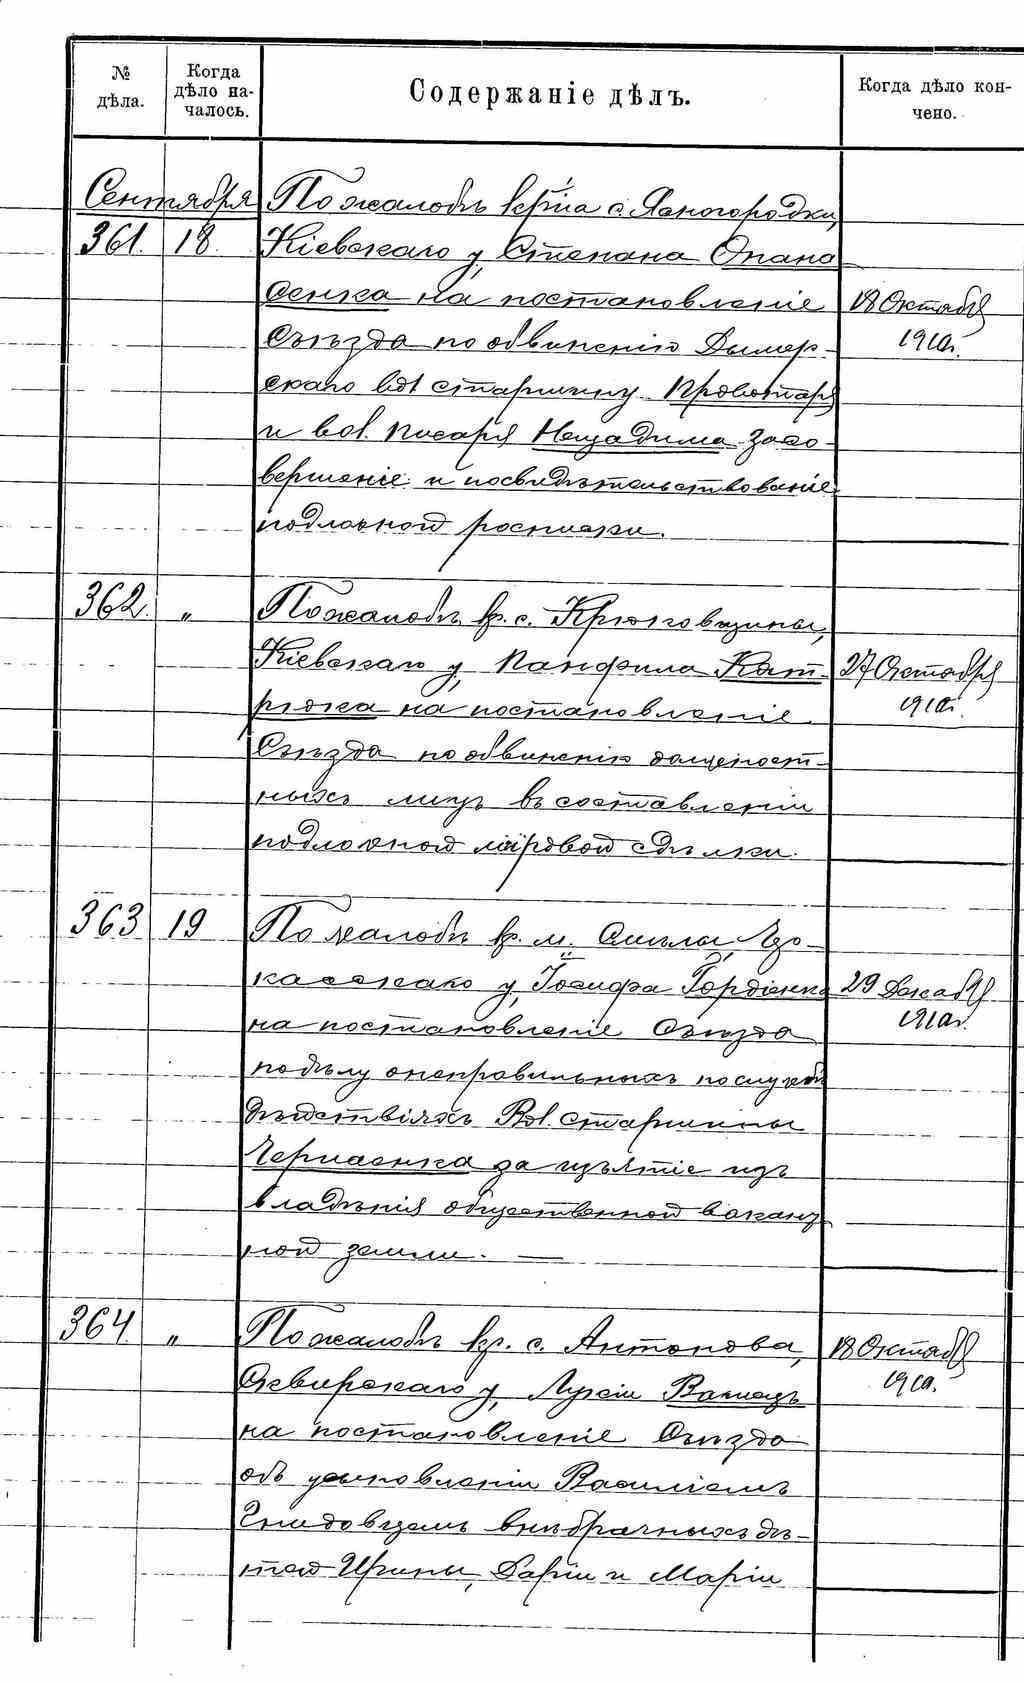 № дѣла.
Когда дѣло на-
чалось.
Содержаніе дѣлъ.
Когда дѣло кон-
чено.
Сентября
По жалобѣ кр-на с. Ясногородки,
361. 18. Кіевскаго у, Степана Опана
сенка на постановленіе
18 Октября
Съѣзда по обвиненію Дымер-
1910г.
скаго вол старшину Провотаря
и вол. писаря Нещадима за со-
вершеніе и посвидѣтельствованіе
подложной росписки.
362. „ По жалобѣ кр. с. Крюковщины,
Кіевскаго у, Панфила Кот-
27 Октября
рюка на постановленіе
1910г.
Съѣзда по обвиненію должност-
ныхъ лицъ въ составленіи
подложной мировой сдѣлки.
363 19 По жалобѣ кр. м. Смѣлы, Чер-
касскаго у, Іосифа Гордіенка
29 Декабря
на постановленіе Съѣзда
1910г.
по дѣлу о неправильныхъ по службѣ
дѣйствіяхъ Вол. старшины
Черненка за изъятіе изъ
владѣнія общественной вакант
ной земли. —
364. „ По жалобѣ кр. с. Антонова,
18 Октября
Сквирскаго у, Лукіи
1910.
на постановленіе Съѣзда
объ усыновленіи Василіемъ
внѣбрачныхъ дѣ-
тей Ирины, Даріи и Маріи